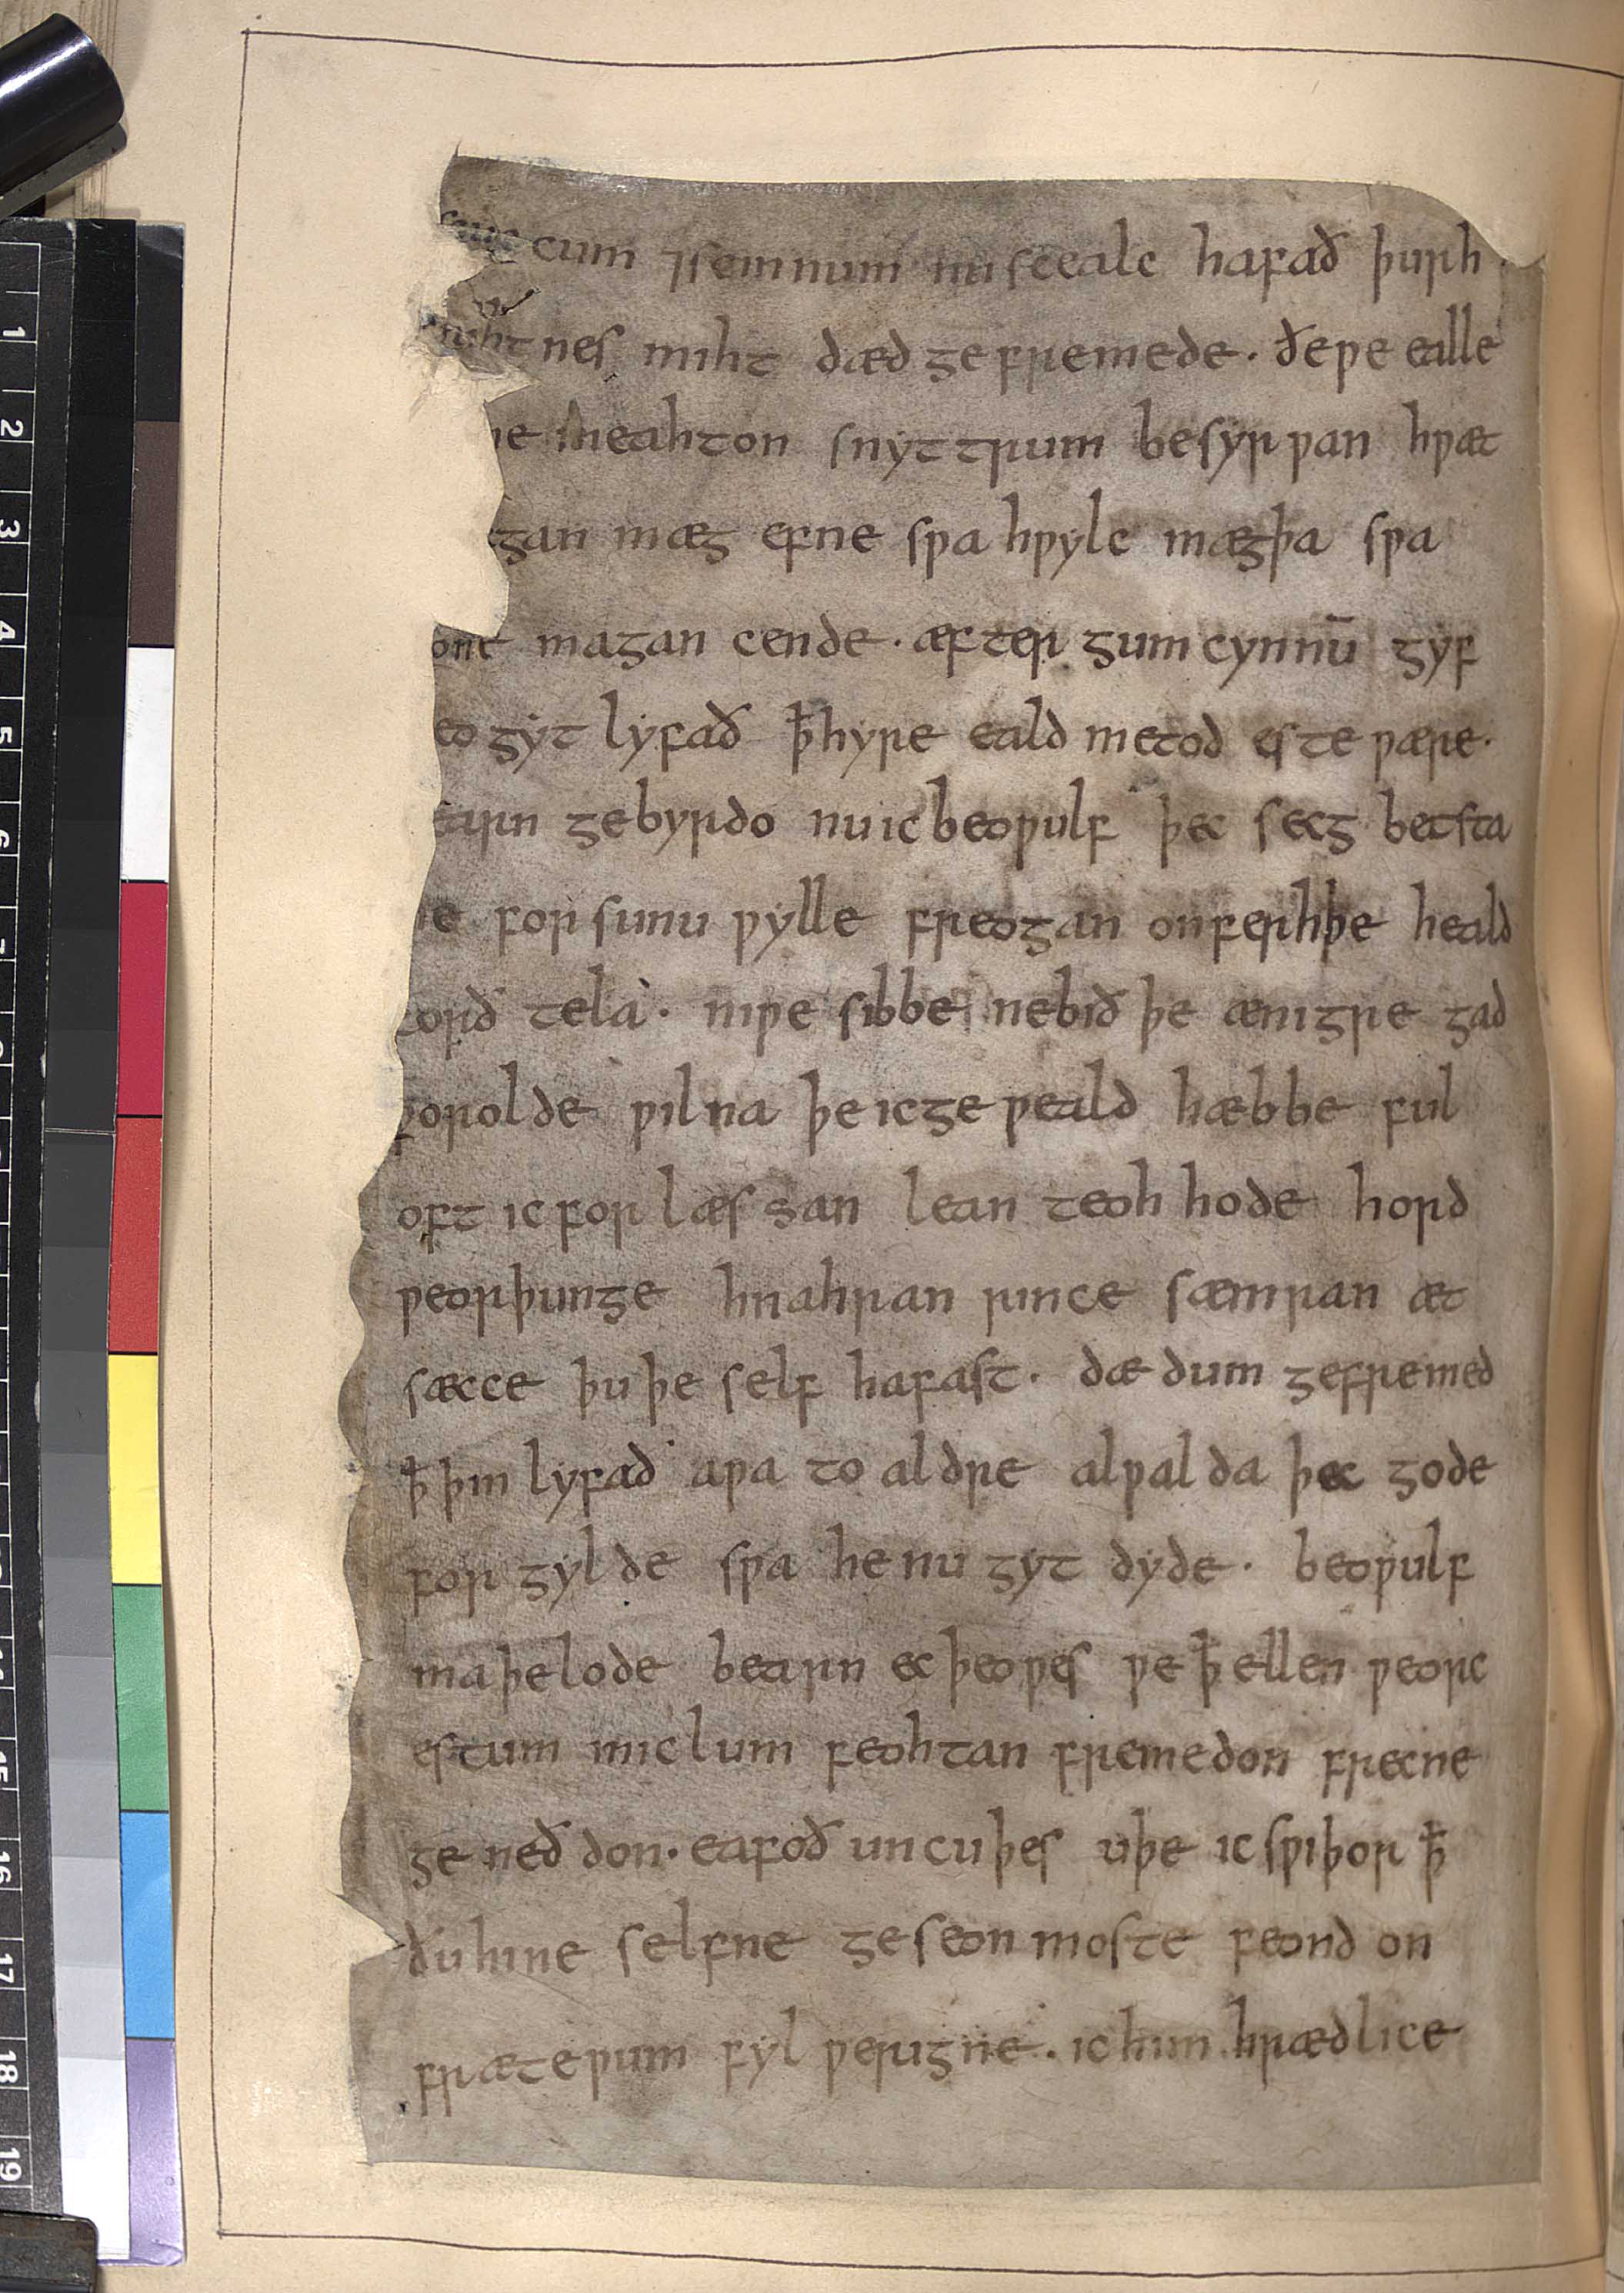 cum ⁊semninum nu scealc hafað þurh
drihtnes miht dæd ge fremede · ðe ƿe ealle
ne meahton snyttrum be syrƿan hƿæt
gan mæg efne sƿa hƿylc mægþa sƿa
one magan cende · æfter gum cynnū gyf
eo gyt lyfað ꝥ hyre eald metod este ƿære ·
earn ge byrdo nu ic beoƿulf þec secg betsta
me for sunu ƿylle freogan on ferhþe heald
forð tela · niƿe sibbe ne bið þe ænigre gad
ƿorolde ƿilna þe ic ge ƿeald hæbbe ful
oft ic for læssan lean teoh hode hord
ƿeorþunge hnahran rince sæmran æt
sæcce þu þe self hafast · dæ dum gefremed
ꝥ þin lyfað aƿa to aldre alƿal da þec gode
for gyl de sƿa he nu gyt dyde · beoƿulf
maþelode bearn ec þeoƿes ƿe ꝥ ellen ƿeorc
estum miclum feohtan fremedon frecne
ge neð don · eafoð un cuþes uþe ic sƿiþor ꝥ
ðu hine selfne ge seon moste feond on
fræteƿum fyl ƿerigne · ic him hrædlice